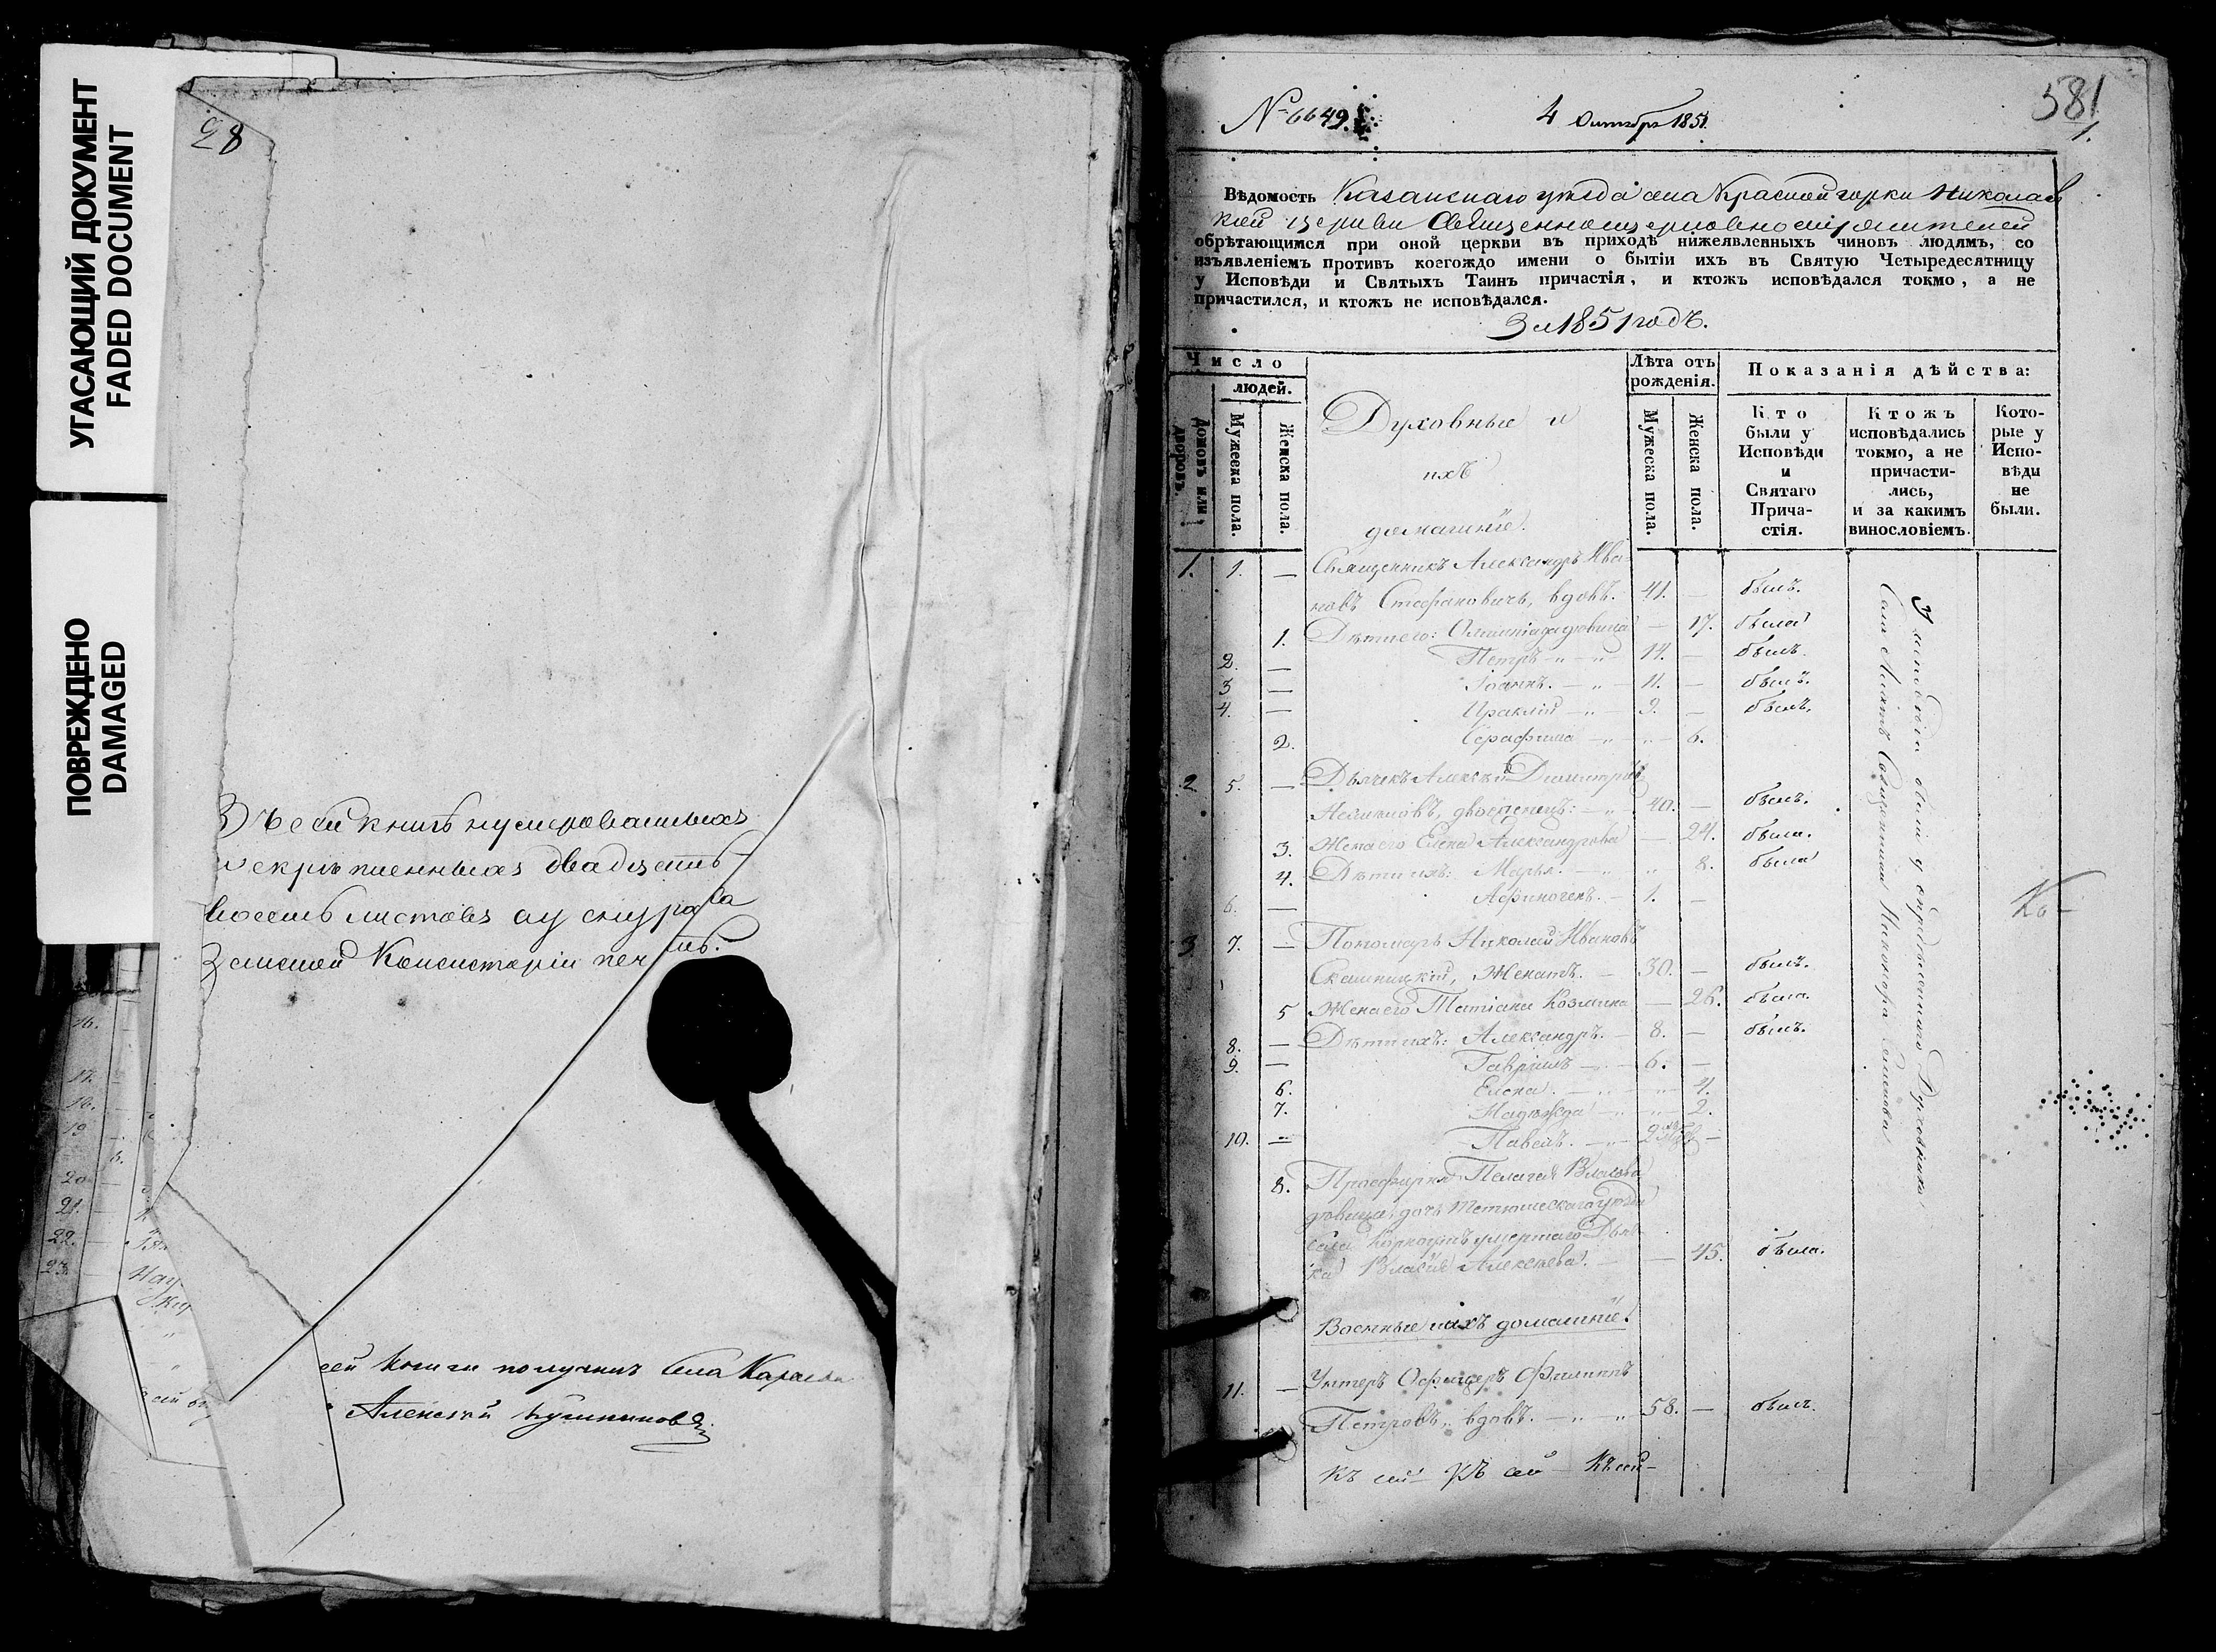 УГАСАЮЩИЙ ДОКУМЕНТ
FADED DOCUMENT
ПОВРЕЖДЕНО
DAMAGED
28
Въ сей книгѣ нумерованныхъ
и скрѣпленныхъ двадцать
восемь листовъ а у снура Ка
занской Консисторіи печать.
сей книги получилъ села
Алексѣй
16.
17.
18.
19
20
21.
22.
23.
№ 6649.
4 Октября 1851.
581
1.
Вѣдомость Казанскаго уѣзда села Красной горки Николаев
кой церкви Священноцерковнослужителей
обрѣтающимся при оной церкви въ приходѣ нижеявленныхъ чиновъ людямъ, со
изъявленіемъ противъ коегождо имени о бытіи ихъ въ Святую Четыредесятницу
у Исповѣди и Святыхъ Таинъ причастія, и ктожъ исповѣдался токмо, а не
причастился, и ктожъ не исповѣдался.
За 1851 годъ.
Число
людей.
Домовъ или дворовъ.
Мужеска пола.
Женска пола.
Духовные и
ихъ
домашніе.
Лѣта отъ
рожденія.
Мужеска пола.
Женска пола.
Показанія дѣйства:
Кто
были у
Исповѣди
и
Святаго
Прича-
стія.
Ктожъ
исповѣдались
токмо, а не
причасти-
лись,
и за какимъ
винословіемъ.
Кото-
рые у
Испо-
вѣди
не
были.
1. 1. — Священникъ Александръ Ива-
новъ Стефановичъ, вдовъ. 41. — былъ.
1. Дѣти его: Олимпіада дѣвица — 17. была
2. — Петръ 14. — былъ.
3 — Іоаннъ. 11. — былъ.
4. — Ираклій 9. — былъ.
2. Серафима 6.
2 5. — Дьячекъ Алексѣй Димитріевъ
двоеженецъ: 40. — былъ.
3. Жена его Елена Александрова — 24. была.
4. Дѣти ихъ: Марья. 8. была
6. — Афиногенъ. 1. —
3 7. — Пономарь Николай Ивановъ
Женатъ. 30. — былъ.
5 Жена его Татіана Козмина — 26. была.
8. — Дѣти ихъ: Александръ. 8. — былъ.
9. — Гавріилъ 6. —
6. Елена. 4.
7. Надежда 2.
10. — Павелъ.
8. Просфирня Пелагея Власова
дѣвица, дочь Тетюшскаго уѣзда
села умершаго Дьяч
ка Власія Алексѣева. — 45. была.
Военные и ихъ домашніе.
11. — Унтеръ Офицеръ Филиппъ
Петровъ, вдовъ. 58. — былъ.
Къ сей — Къ сей — Къ сей —
У исповѣди были у опредѣленнаго Духовника
Села Священника Никанора